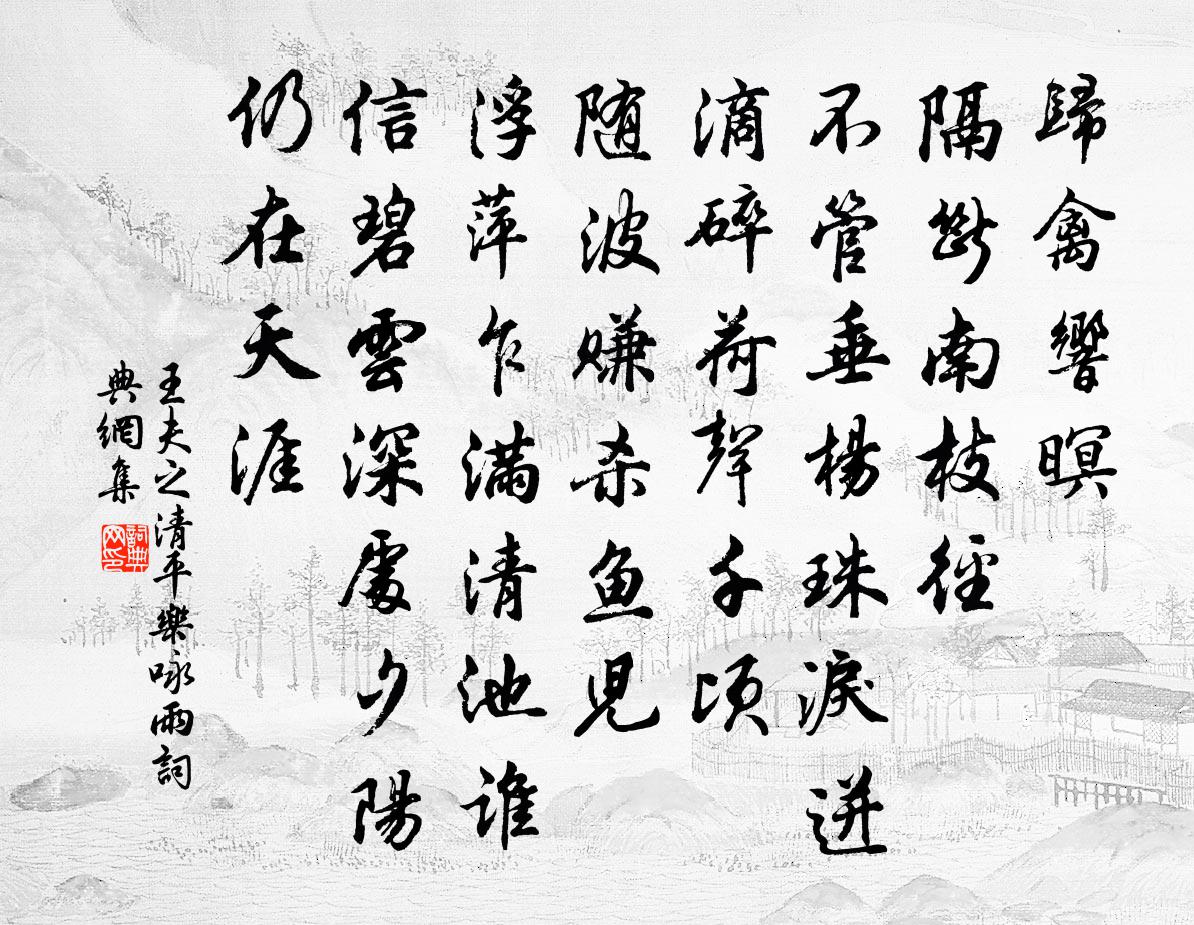 歸禽響暝
隔斷南枝徑
不管垂楊珠淚迸
滴碎荷聲千頃
随波赚杀鱼児
浮萍乍满清池
谁信碧雲深處夕陽
仍在天涯
王夫之清平樂咏雨詞
典網集
詞典网印